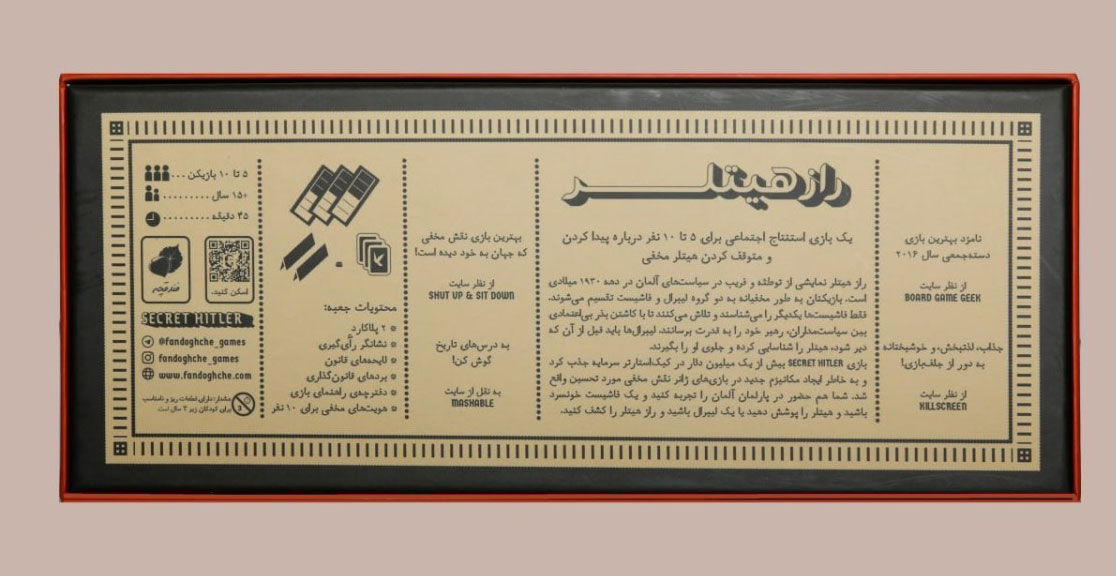 نامزد بهترین بازی
دسته‌جمعی سال ۲۰۱۶
از نظر سایت
BOARD GAME GEEK
جذاب، لذتبخش، و خوشبختانه
به دور از جلف‌بازی!
از نظر سایت
KILLSCREEN
راز هیتلر
یک بازی استنتاج اجتماعی برای ۵ تا ۱۰ نفر درباره پیدا کردن
و متوقف کردن هیتلر مخفی
راز هیتلر نمایشی از توطئه و فریب در سیاست‌های آلمان در دهه ۱۹۳۰ میلادی
است. بازیکنان به طور مخفیانه به دو گروه لیبرال و فاشیست تقسیم می‌شوند.
فقط فاشیست‌ها یکدیگر را می‌شناسند و تلاش می‌کنند تا با کاشتن بذر بی‌اعتمادی
بین سیاست‌مداران، رهبر خود را به قدرت برسانند. لیبرال‌ها باید قبل از آن که
دیر شود، هیتلر را شناسایی کرده و جلوی او را بگیرند.
بازی SECRET HITLER بیش از یک میلیون دلار در کیک‌استارتر سرمایه جذب کرد
و به خاطر ایجاد مکانیزم جدید در بازی‌های ژانر نقش مخفی مورد تحسین واقع
شد. شما هم حضور در پارلمان آلمان را تجربه کنید و یک فاشیست خونسرد
باشید و هیتلر را پوشش دهید یا یک لیبرال باشید و راز هیتلر را کشف کنید.
بهترین بازی نقش مخفی
که جهان به خود دیده است!
از نظر سایت
SHUT UP & SIT DOWN
به درس‌های تاریخ
گوش کن!
به نقل از سایت
MASHABLE
محتویات جعبه:
۲ پلاکارد
نشانگر رأی‌گیری
لایحه‌های قانون
بردهای قانون‌گذاری
دفترچه‌ی راهنمای بازی
هویت‌های مخفی برای ۱۰ نفر
۵ تا ۱۰ بازیکن ...
+۱۵ سال .........
۴۵ دقیقه ........
اسکن کنید.
فندقچه
SECRET HITLER
@fandoghche_games
fandoghche_games
www.fandoghche.com
هشدار: دارای قطعات ریز و نامناسب
برای کودکان زیر ۳ سال است